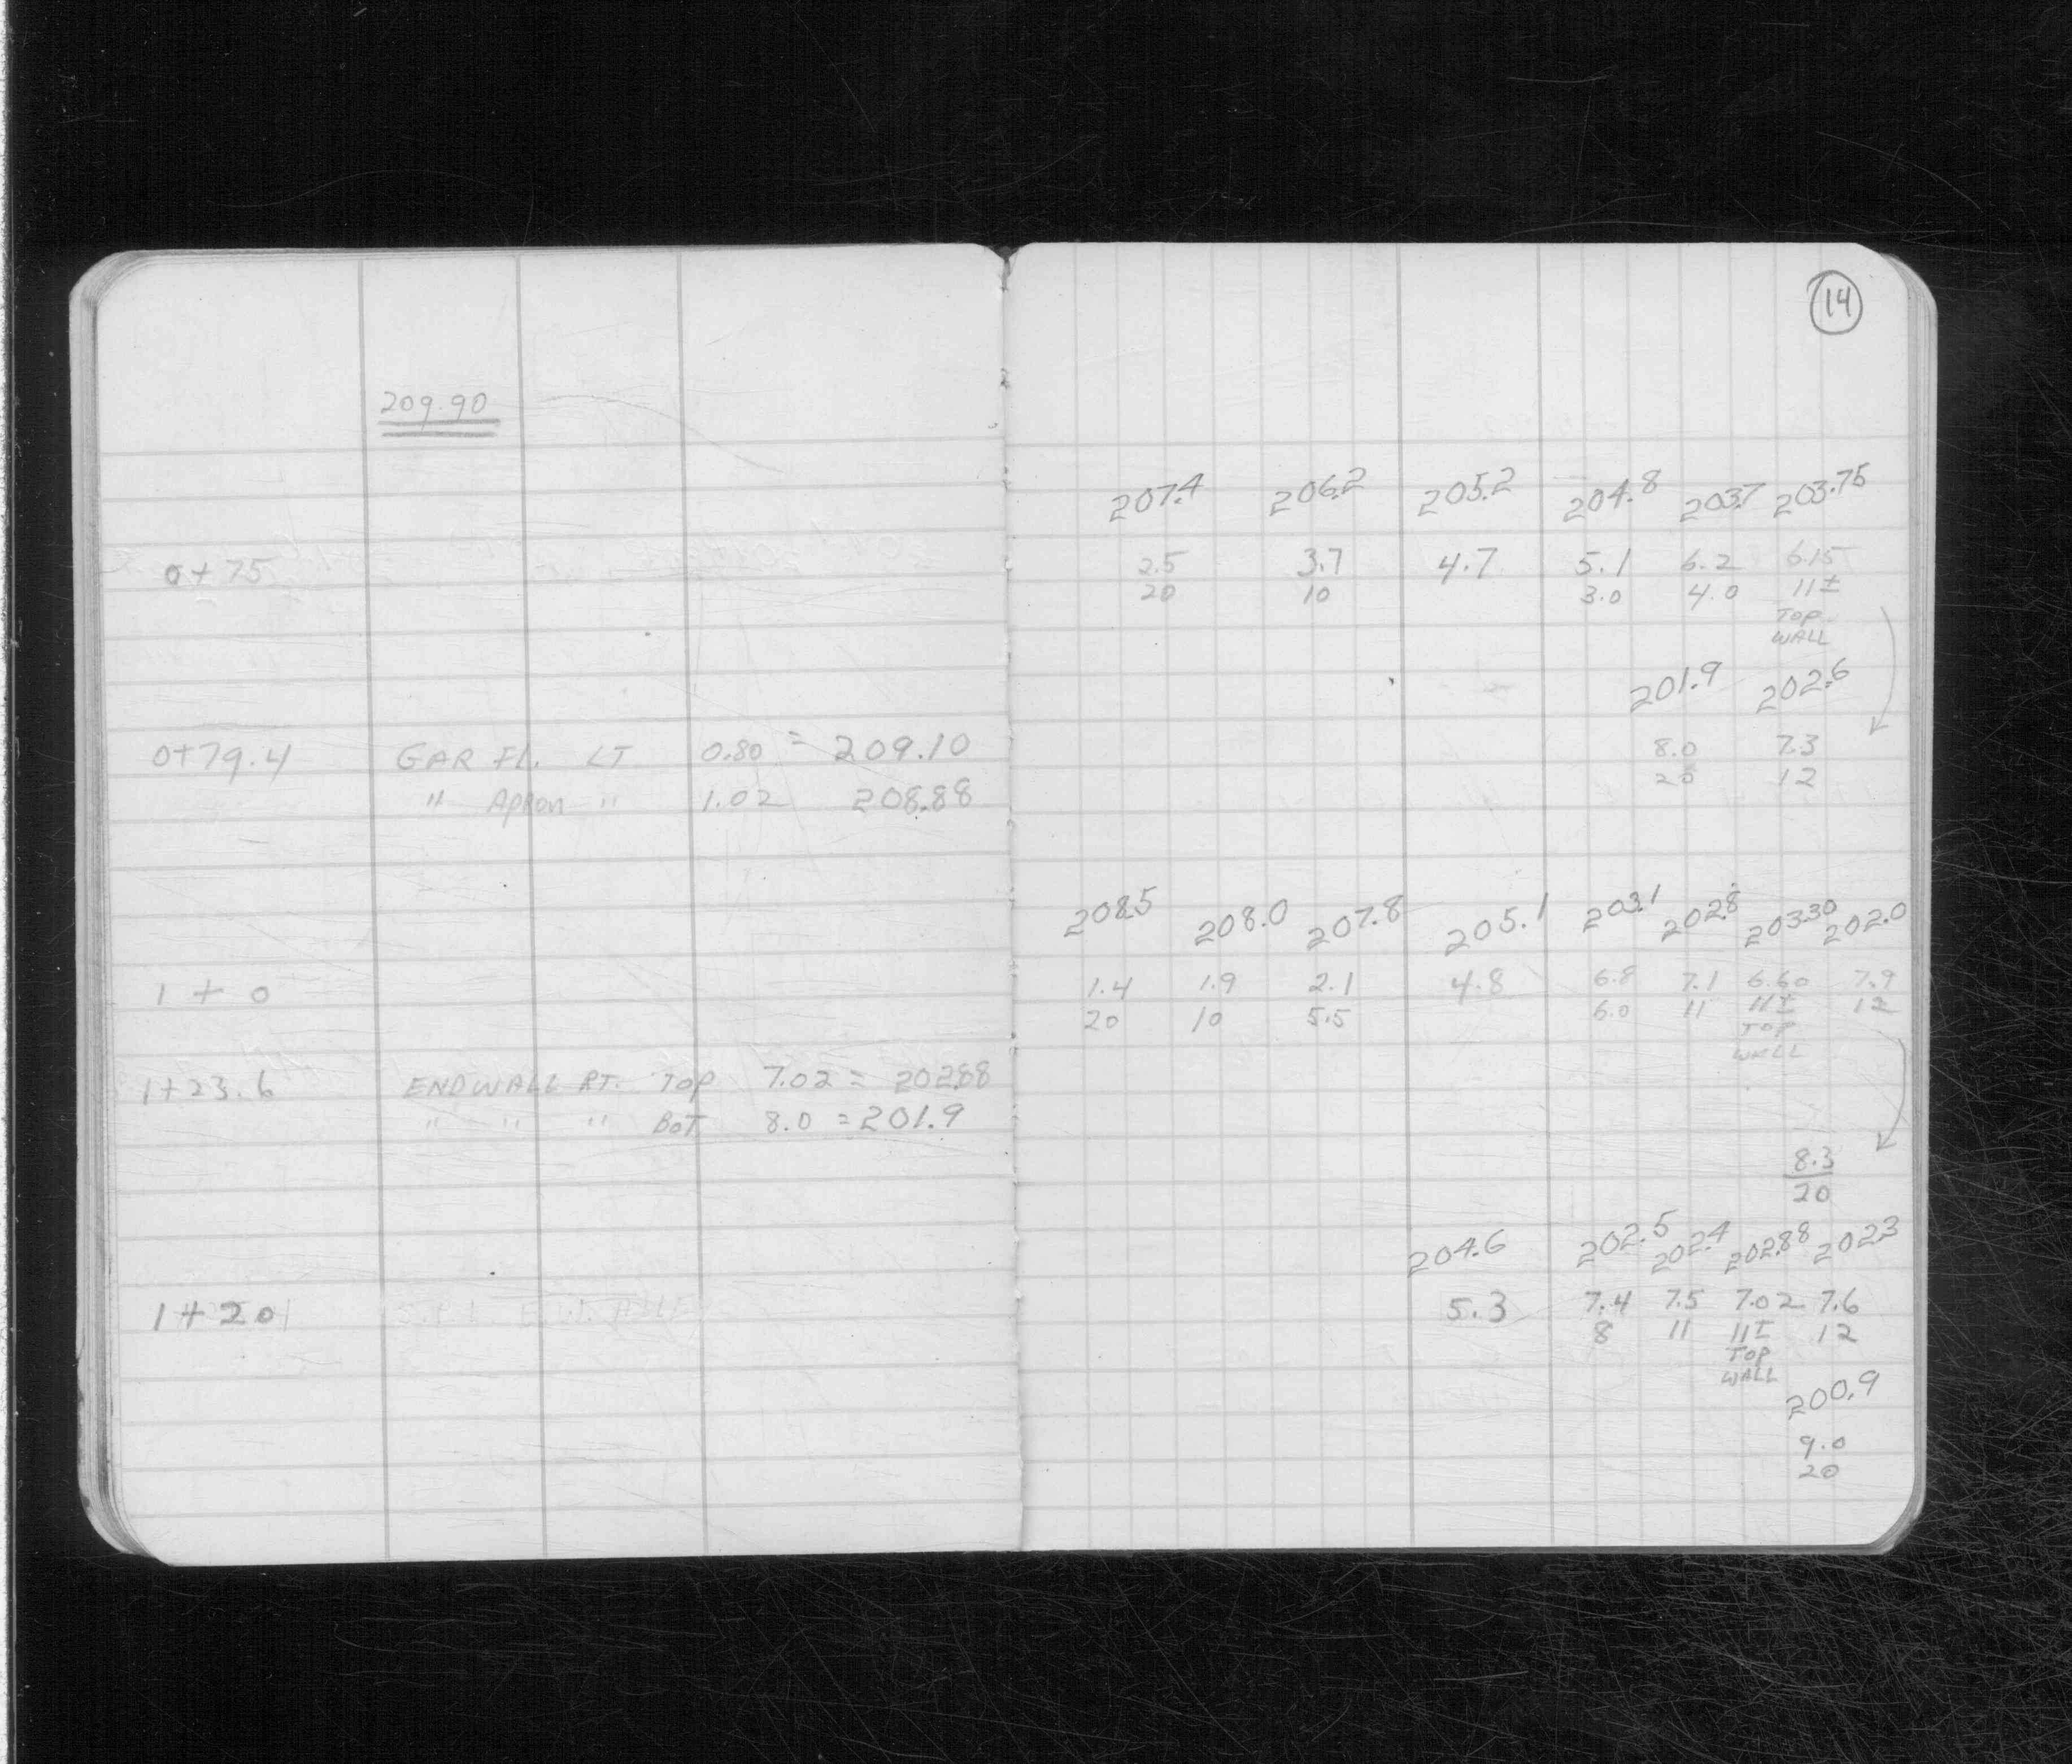 14
209.90
207.4 206.2 205.2 204.8 203.7 203.75
0+75 2.5 3.7 4.7 5.1 6.2 6.15
20 10 3.0 4.0 11±
TOP
WALL
201.9 202.6
0+79.4 GAR FL. LT 0.80 = 209.10 8.0 7.3
" Apron " 1.02 208.88 20 12
208.5 208.0 207.8 205.1 203.1 202.8 203.30 202.0
1+0 1.4 1.9 2.1 4.8 6.8 7.1 6.60 7.9
20 10 5.5 6.0 11 11± 12
TOP
WALL
1+23.6 ENDWALL RT. TOP 7.02 = 202.88
" " " BOT 8.0 = 201.9
8.3
20
204.6 202.5 202.4 202.88 202.3
1+20 5.3 7.4 7.5 7.02 7.6
8 11 11± 12
TOP
WALL
200.9
9.0
20